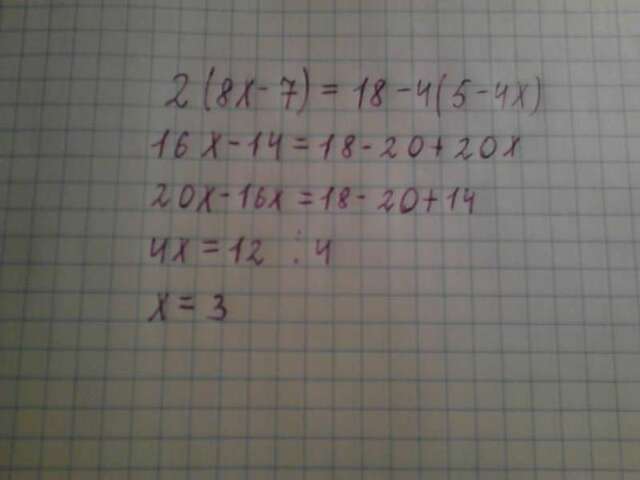 2(8x-7)=18-4(5-4x)
16x-14=18-20+20x
20x-16x=18-20+14
4x=12 :4
x=3